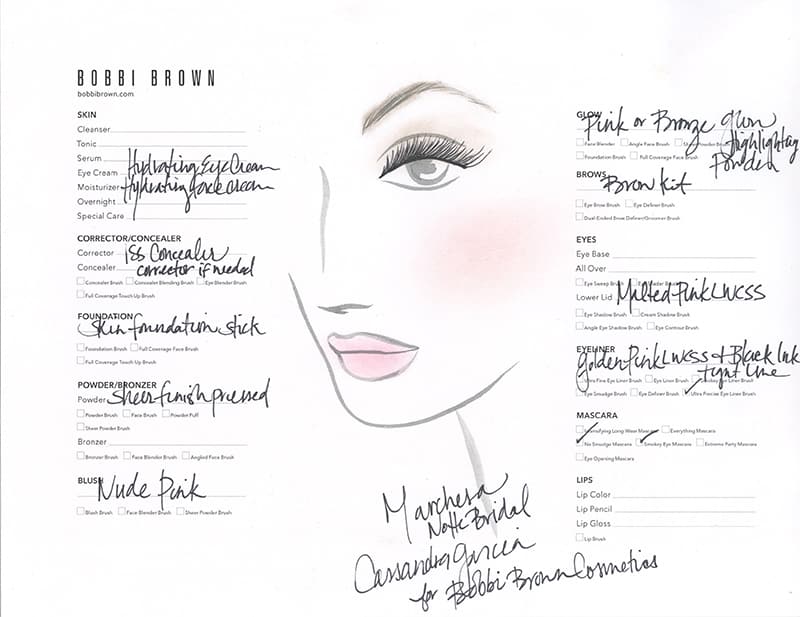 BOBBI BROWN
bobbibrown.com
SKIN
Cleanser
Tonic
Serum
Eye Cream Hydrating Eye Cream
Moisturizer Hydrating face cream
Overnight
Special Care
CORRECTOR/CONCEALER
Corrector iss Concealer
Concealer corrector if needed
Concealer Brush Concealer Blending Brush Eye Blender Brush
Full Coverage Touch Up Brush
FOUNDATION
Skin foundation stick
Foundation Brush Full Coverage Face Brush
Full Coverage Touch Up Brush
POWDER/BRONZER
Powder sheer finish pressed
Powder Brush Face Brush Powder Puff
Sheer Powder Brush
Bronzer
Bronzer Brush Face Blender Brush Angled Face Brush
BLUSH
Nude Pink
Blush Brush Face Blender Brush Sheer Powder Brush
GLOW
Pink or Bronze glow
Highlighting
Powder
Face Blender Angle Face Brush Sheer Powder Brush
Foundation Brush Full Coverage Face Brush
BROWS
Brow kit
Eye Brow Brush Eye Definer Brush
Dual-Ended Brow Definer/Groomer Brush
EYES
Eye Base
All Over
Eye Sweep Brush Eye Shader Brush
Lower Lid Malted Pink LWCSS
Eye Shadow Brush Cream Shadow Brush
Angle Eye Shadow Brush Eye Contour Brush
EYELINER
golden Pink LWCSS + Black Ink
tight line
Ultra Fine Eye Liner Brush Eye Liner Brush Smokey Eye Liner Brush
Eye Smudge Brush Eye Definer Brush Ultra Precise Eye Liner Brush
MASCARA
Intensifying Long Wear Mascara Everything Mascara
No Smudge Mascara Smokey Eye Mascara Extreme Party Mascara
Eye Opening Mascara
LIPS
Lip Color
Lip Pencil
Lip Gloss
Lip Brush
Marchesa
Notte Bridal
Cassandra Garcia
for Bobbi Brown Cosmetics